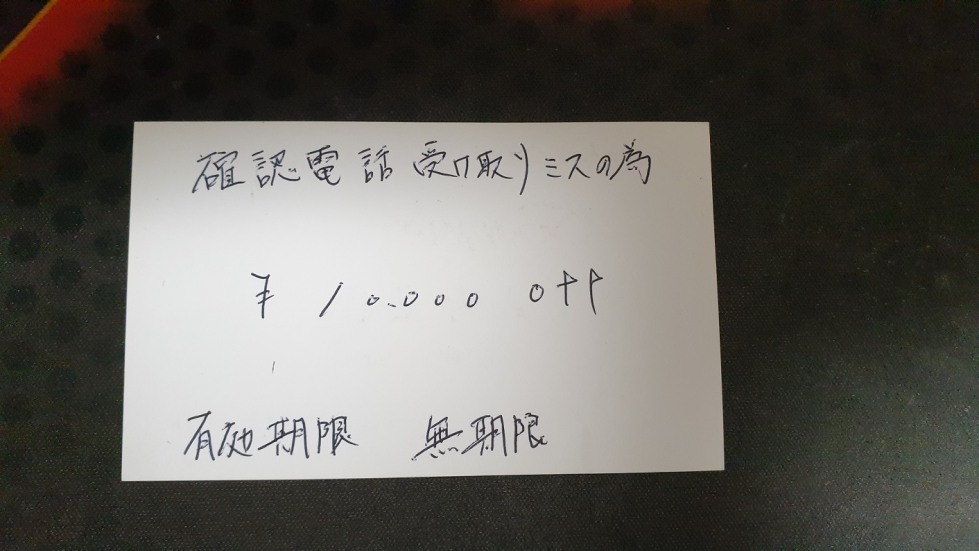 確認電話受け取りミスの為
¥10.000 off
有効期限 無期限